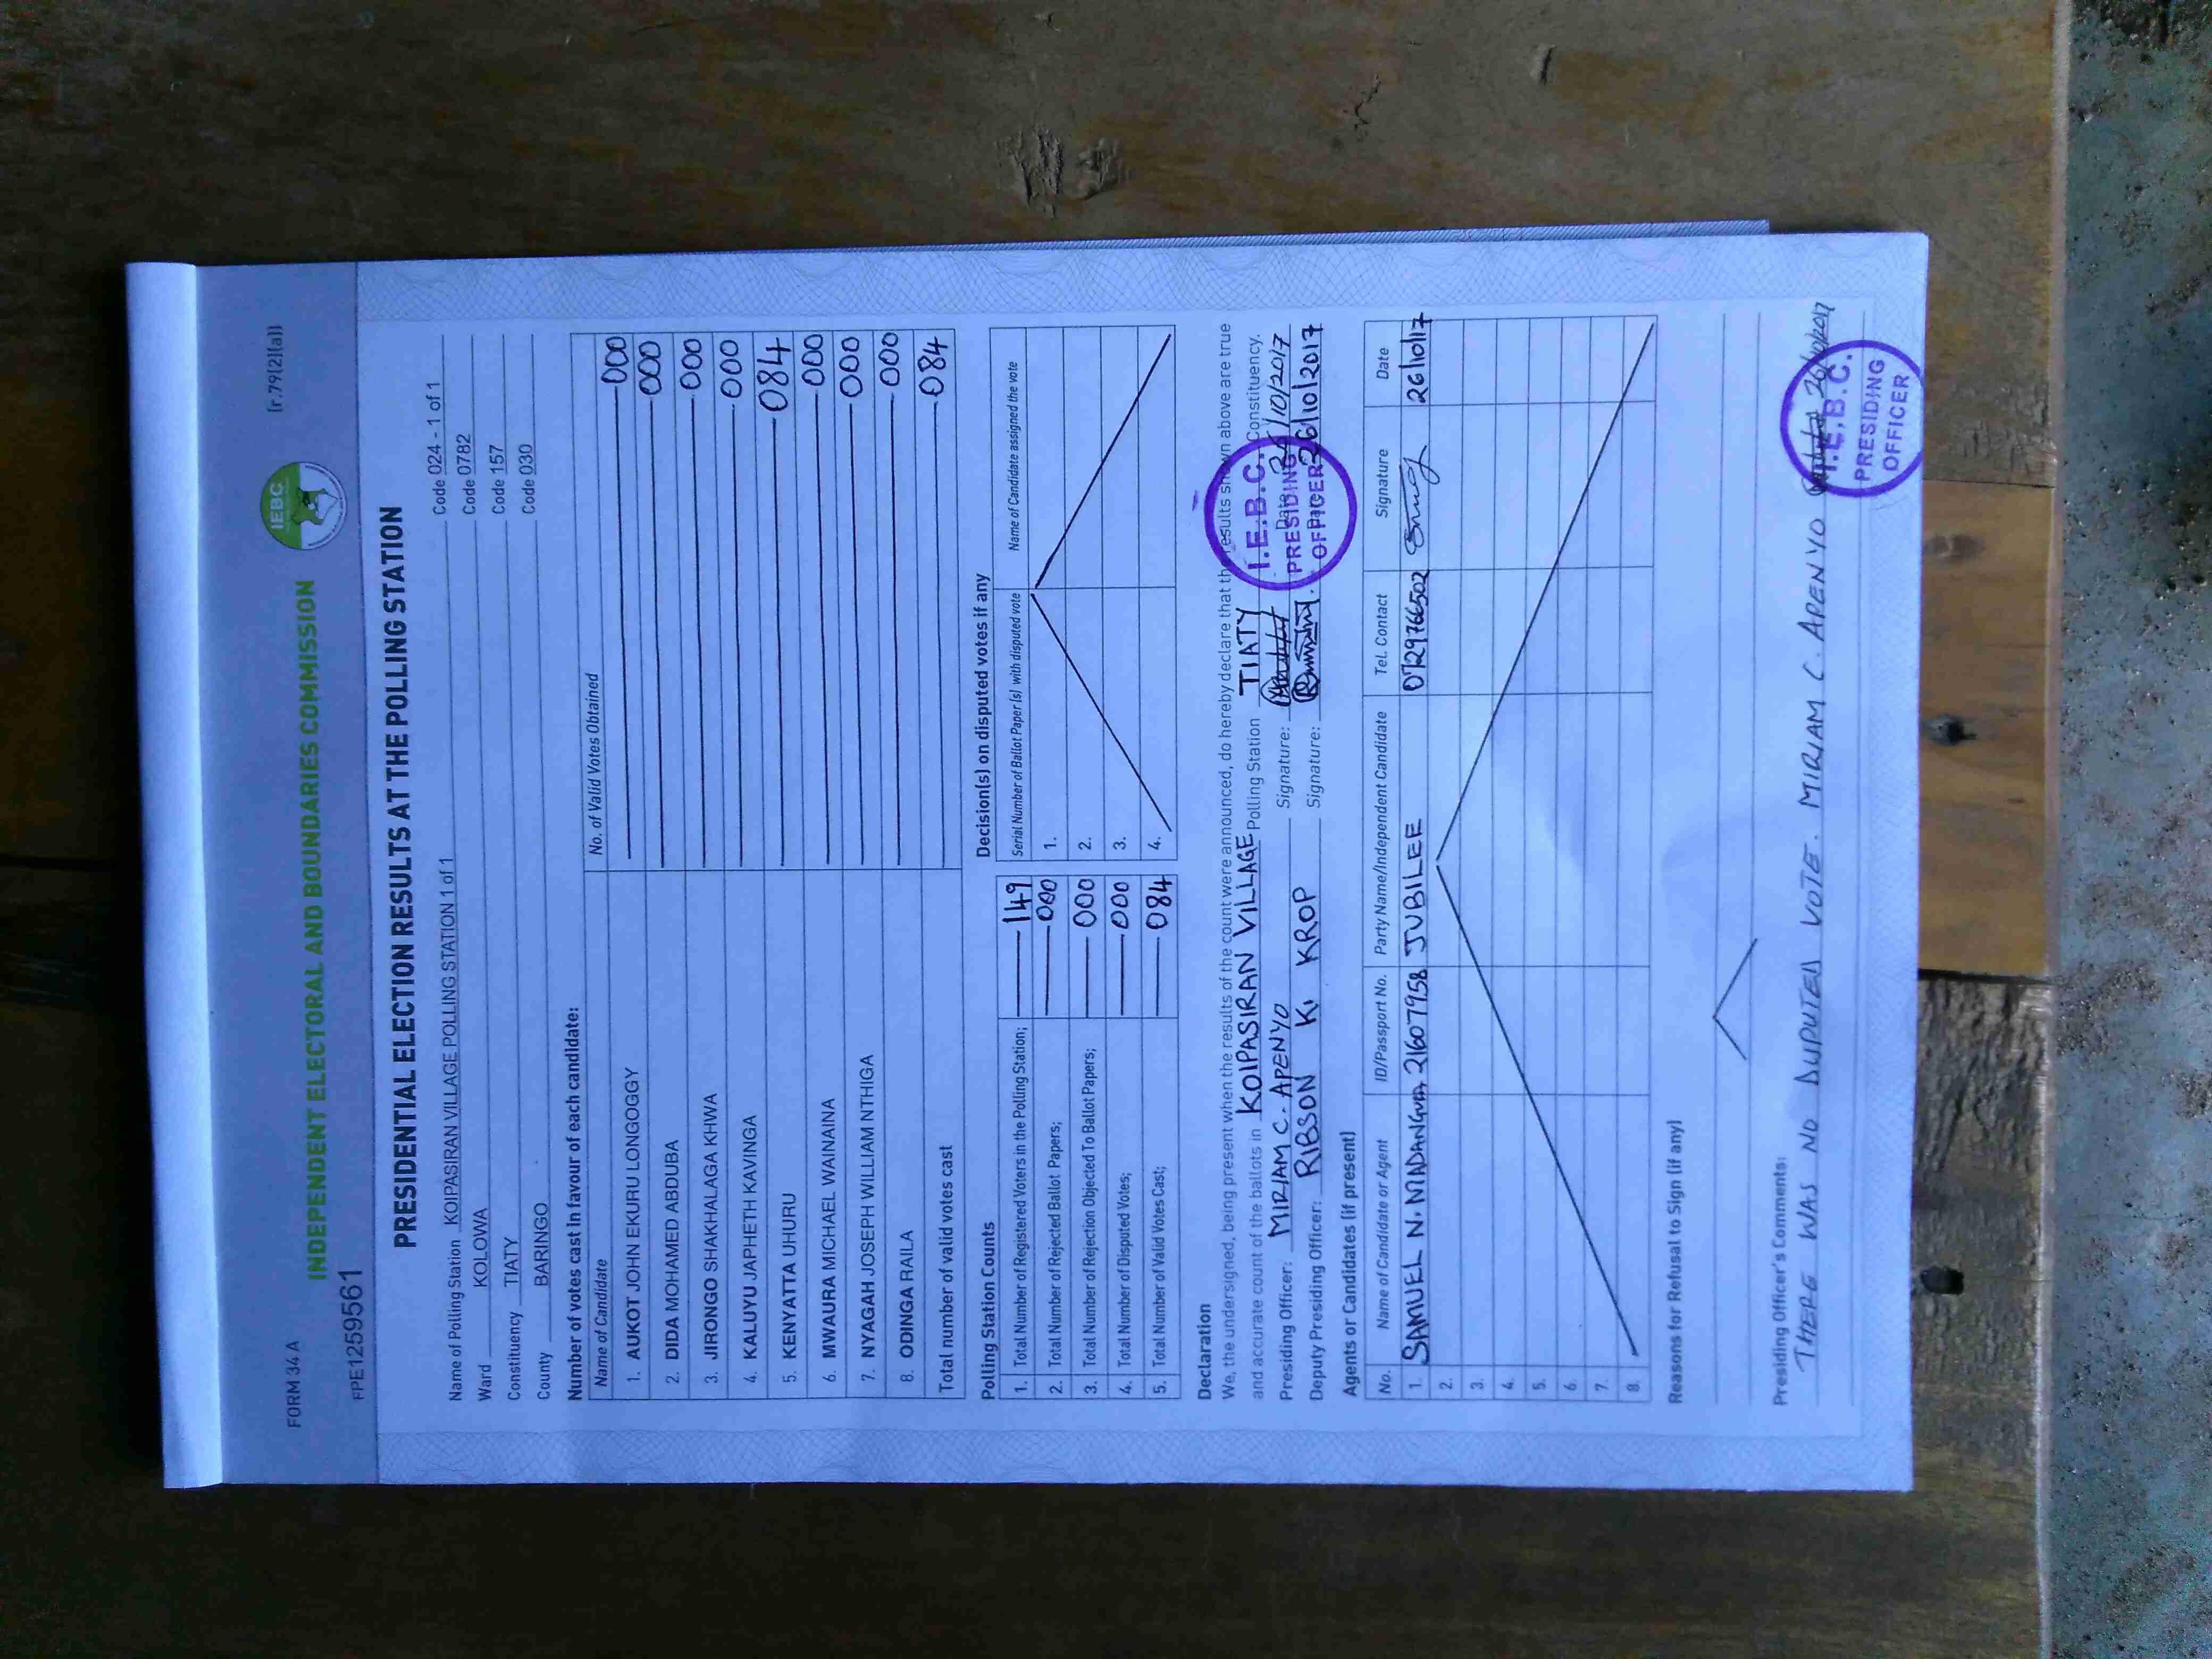 FORM 34 A
[r.79(2)(a)]
INDEPENDENT ELECTORAL AND BOUNDARIES COMMISSION
IEBC
FPE1259561
PRESIDENTIAL ELECTION RESULTS AT THE POLLING STATION
Name of Polling Station KOIPASIRAN VILLAGE POLLING STATION 1 of 1 Code 024 - 1 of 1
Ward KOLOWA Code 0782
Constituency TIATY Code 157
County BARINGO Code 030
Number of votes cast in favour of each candidate:
Name of Candidate No. of Valid Votes Obtained
1. AUKOT JOHN EKURU LONGOGGY 000
2. DIDA MOHAMED ABDUBA 000
3. JIRONGO SHAKHALAGA KHWA 000
4. KALUYU JAPHETH KAVINGA 000
5. KENYATTA UHURU 084
6. MWAURA MICHAEL WAINAINA 000
7. NYAGAH JOSEPH WILLIAM NTHIGA 000
8. ODINGA RAILA 000
Total number of valid votes cast 084
Polling Station Counts
1. Total Number of Registered Voters in the Polling Station; 149
2. Total Number of Rejected Ballot Papers; 000
3. Total Number of Rejection Objected To Ballot Papers; 000
4. Total Number of Disputed Votes; 000
5. Total Number of Valid Votes Cast; 084
Decision(s) on disputed votes if any
Serial Number of Ballot Paper (s) with disputed vote Name of Candidate assigned the vote
1.
2.
3.
4.
Declaration
We, the undersigned, being present when the results of the count were announced, do hereby declare that the results shown above are true
and accurate count of the ballots in KOIPASIRAN VILLAGE Polling Station TIATY Constituency.
Presiding Officer: MIRIAM C. APENYO Signature: Date 26/10/2017
Deputy Presiding Officer: RIBSON K. KROP Signature: 26/10/2017
I.E.B.C.
PRESIDING
OFFICER
Agents or Candidates (if present)
No. Name of Candidate or Agent ID/Passport No. Party Name/Independent Candidate Tel. Contact Signature Date
1. SAMUEL N. 21607958 JUBILEE 0729766502 26/10/17
2.
3.
4.
5.
6.
7.
8.
Reasons for Refusal to Sign (if any)
Presiding Officer's Comments:
THERE WAS NO DISPUTED VOTE. MIRIAM C. APENYO 26/10/2017
I.E.B.C.
PRESIDING
OFFICER